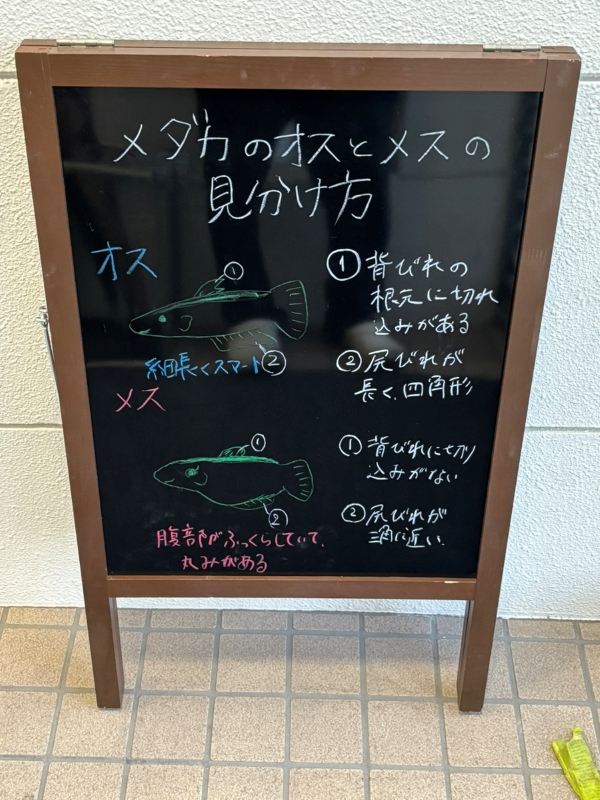 メダカのオスとメスの
見分け方
オス
①
②
細長くスマート
①背びれの
根元に切れ
込みがある
②尻びれが
長く、四角形
メス
①
②
腹部がふっくらしていて、
丸みがある
①背びれに切り
込みがない
②尻びれが
三角に近い